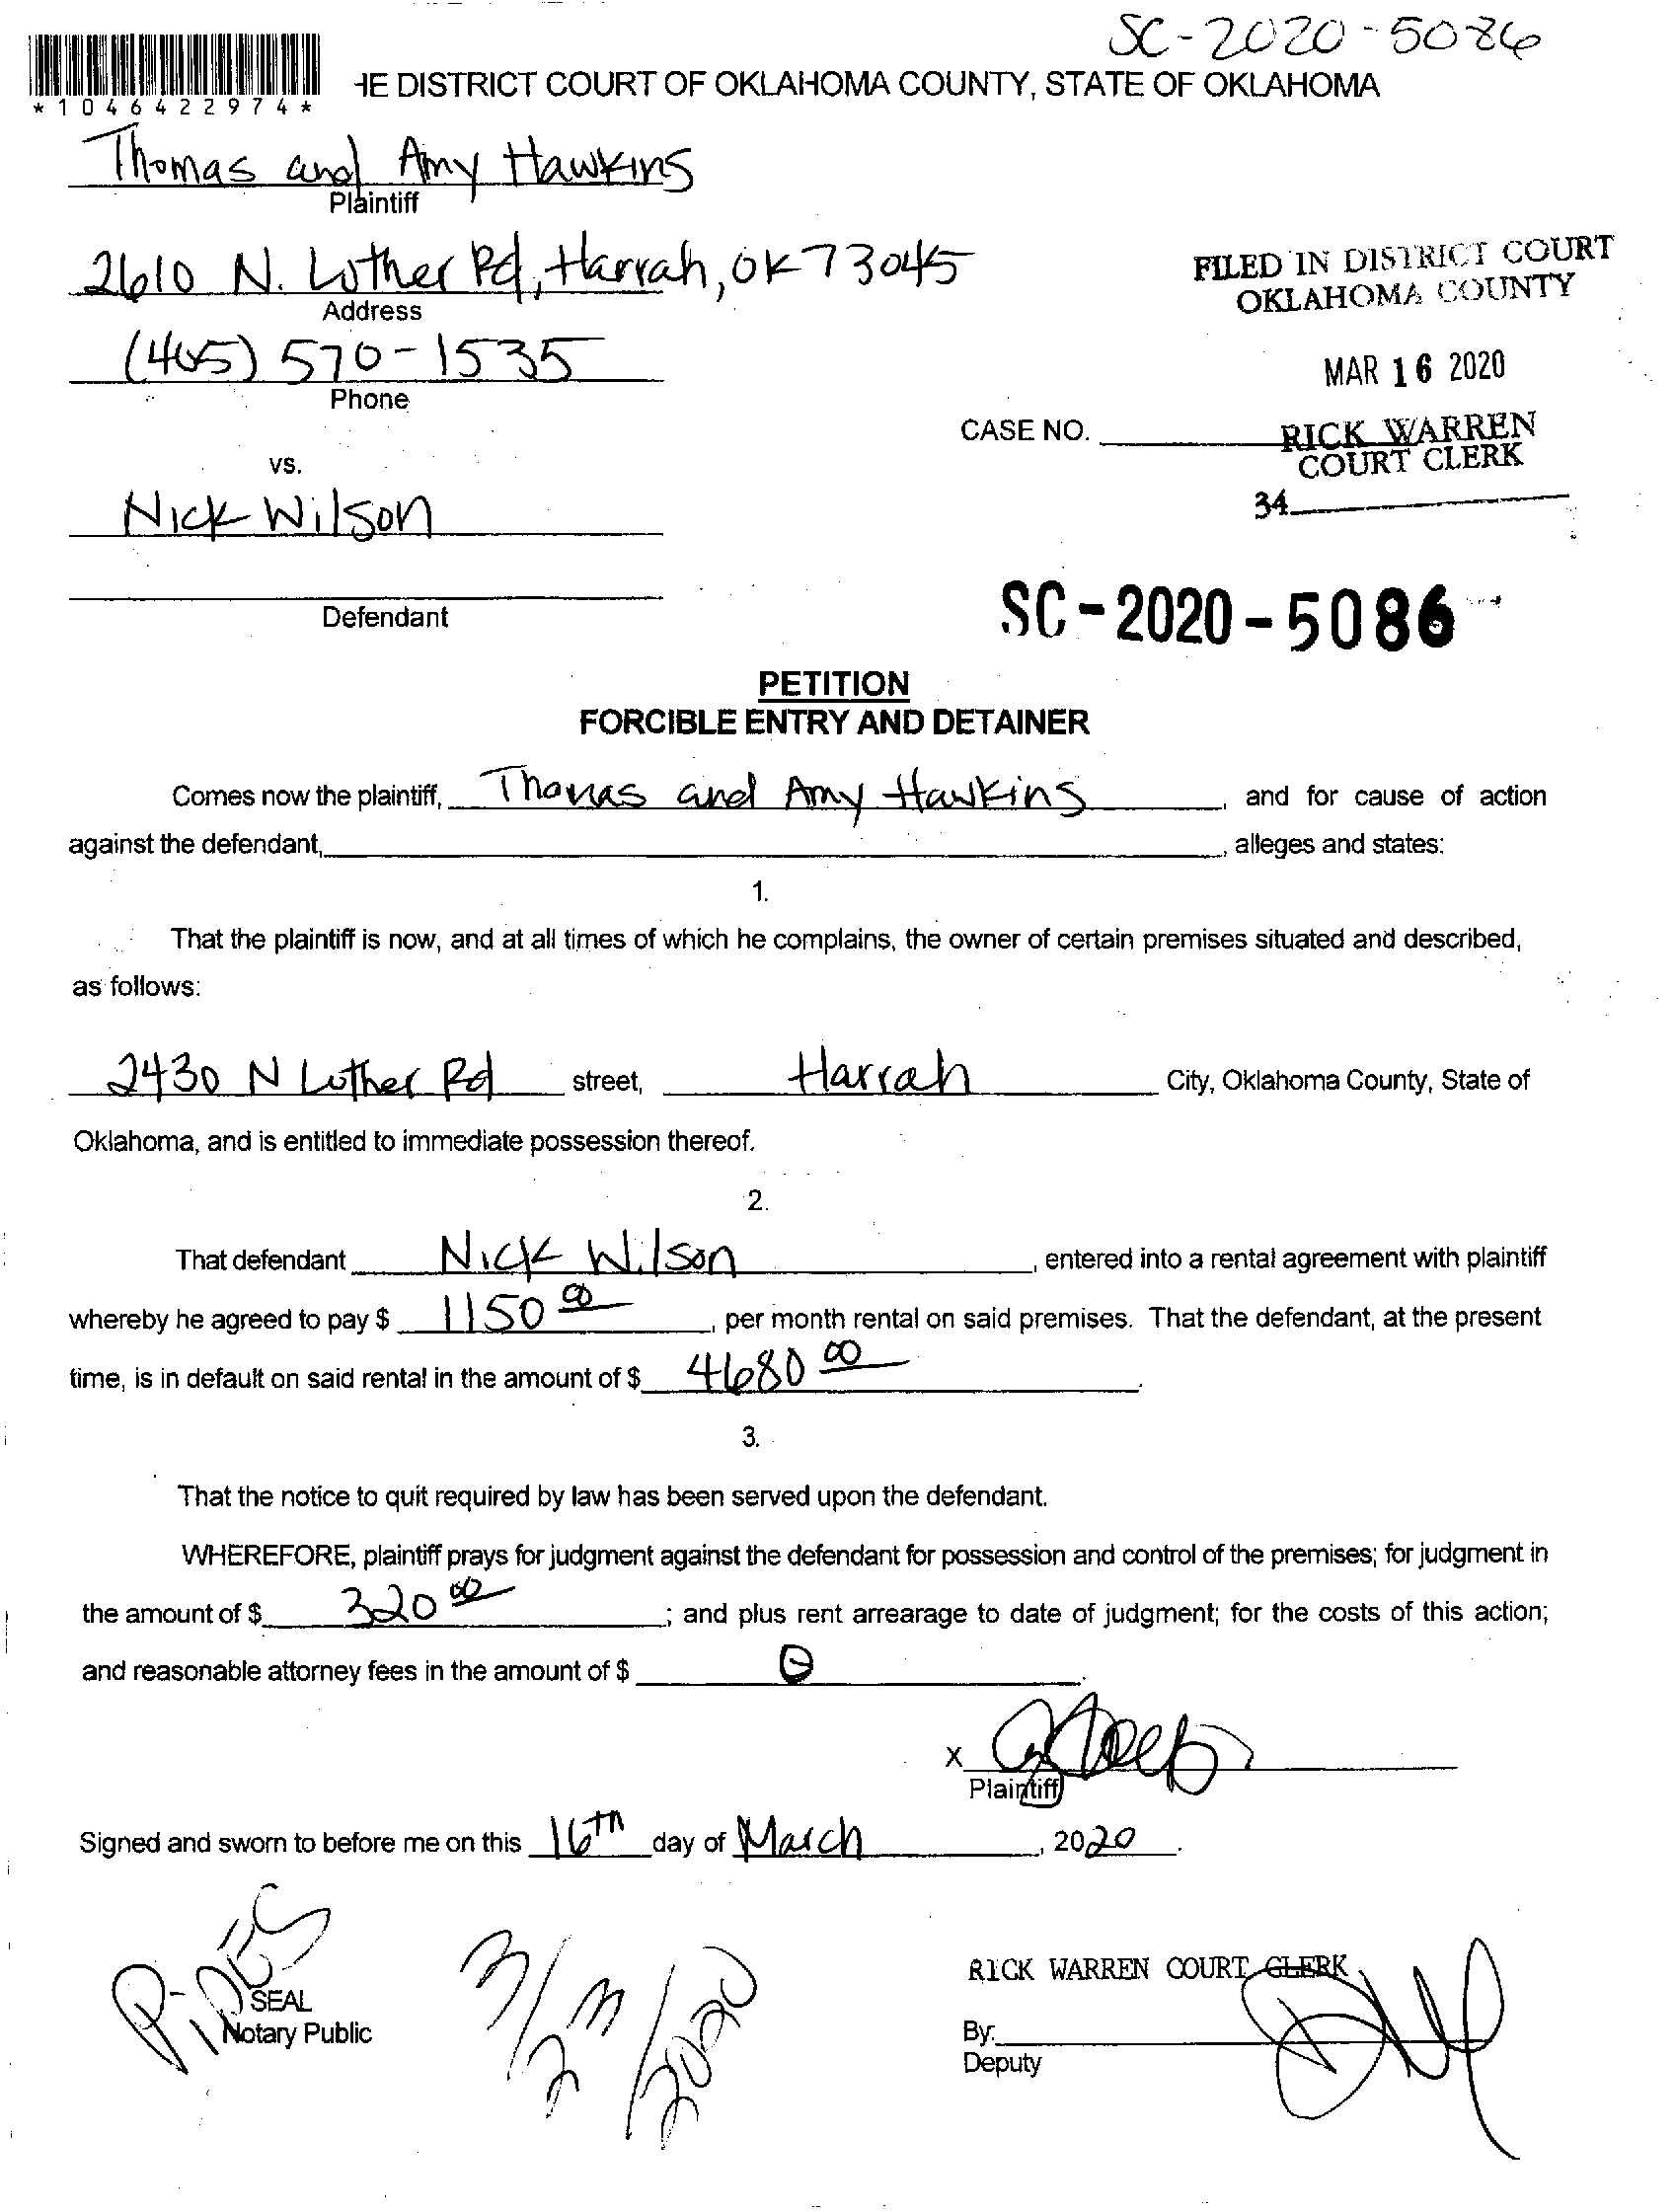 SC-2020-5086
*1046422974*
HE DISTRICT COURT OF OKLAHOMA COUNTY, STATE OF OKLAHOMA
Thomas and Amy Hawkins
Plaintiff
2610 N. Luther Rd, Harrah, OK 73045
Address
FILED IN DISTRICT COURT
OKLAHOMA COUNTY
(405) 570-1535
Phone
MAR 16 2020
CASE NO.
RICK WARREN
COURT CLERK
vs.
34
Nick Wilson
Defendant
SC-2020-5086
PETITION
FORCIBLE ENTRY AND DETAINER
Comes now the plaintiff, Thomas and Amy Hawkins, and for cause of action
against the defendant, , alleges and states:
1.
That the plaintiff is now, and at all times of which he complains, the owner of certain premises situated and described,
as follows:
2430 N Luther Rd street, Harrah City, Oklahoma County, State of
Oklahoma, and is entitled to immediate possession thereof.
2.
That defendant Nick Wilson, entered into a rental agreement with plaintiff
whereby he agreed to pay $ 1150 00, per month rental on said premises. That the defendant, at the present
time, is in default on said rental in the amount of $ 4680 00.
3.
That the notice to quit required by law has been served upon the defendant.
WHEREFORE, plaintiff prays for judgment against the defendant for possession and control of the premises; for judgment in
the amount of $ 320 00; and plus rent arrearage to date of judgment; for the costs of this action;
and reasonable attorney fees in the amount of $ 0.
X
Plaintiff
Signed and sworn to before me on this 16TH day of March, 2020.
SEAL
Notary Public
3/23/2020
RICK WARREN COURT CLERK
By:
Deputy